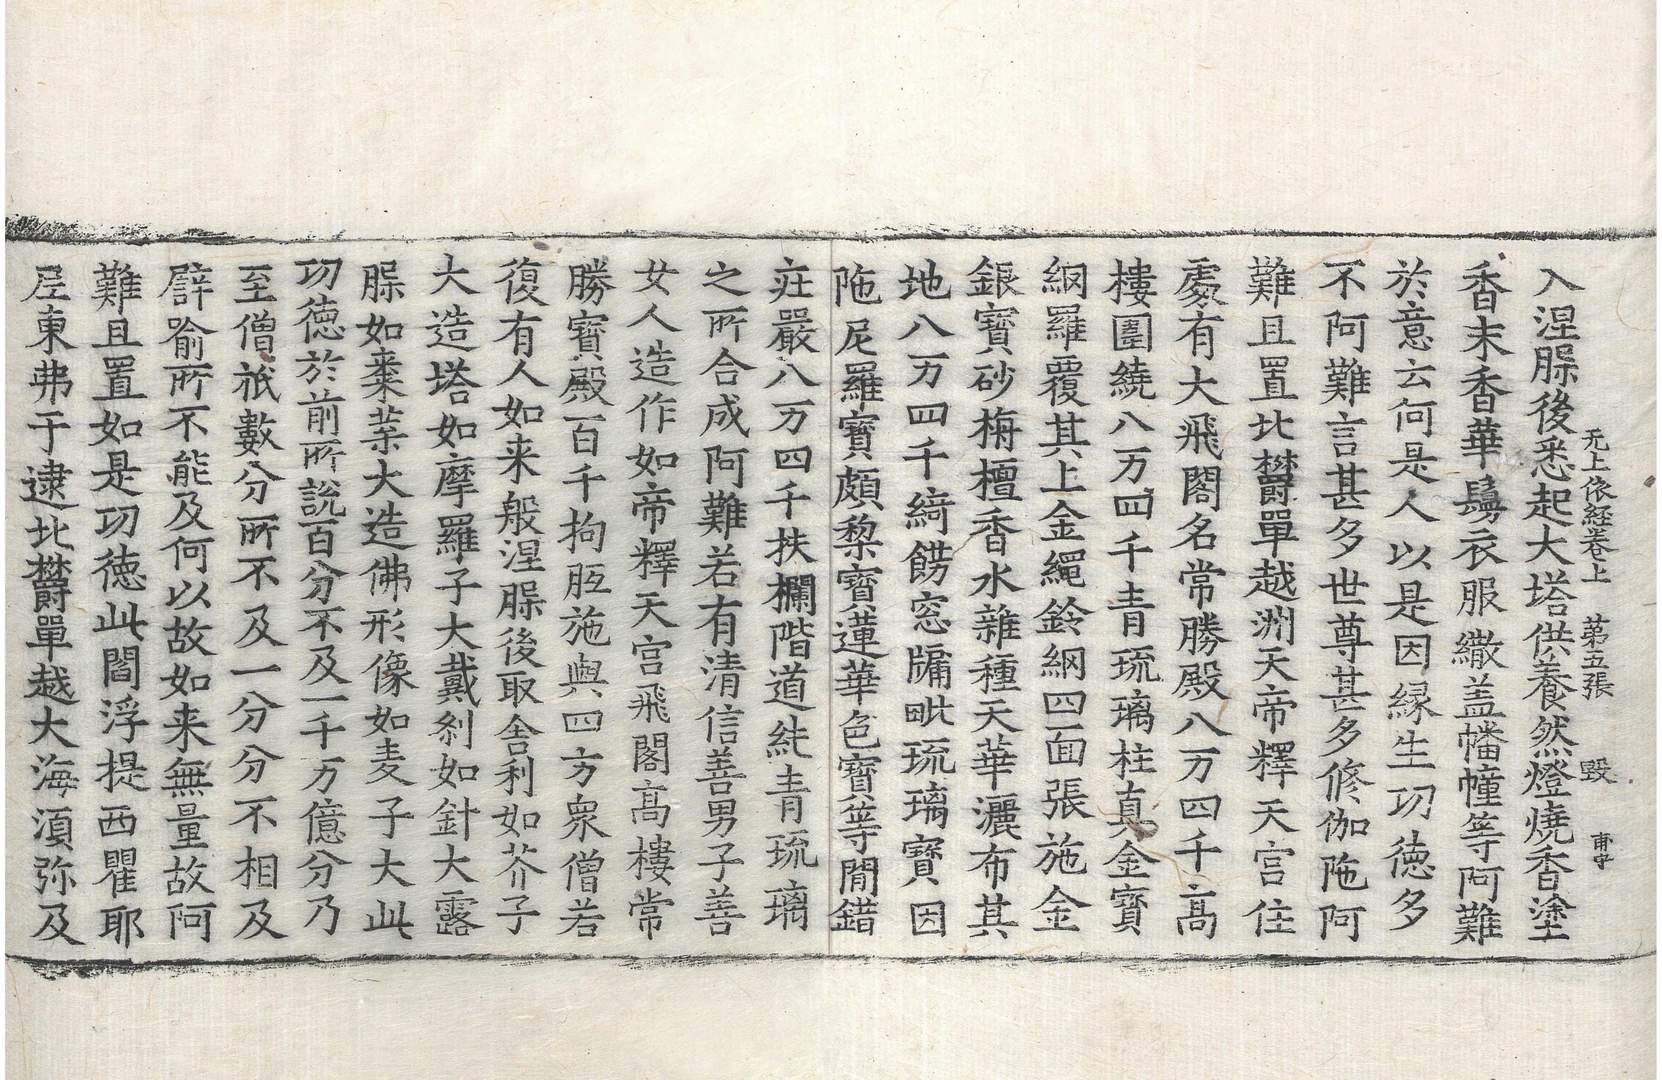 无上依経卷上　苐五張　毀　南字
入涅𦚾後悉起大塔供養然燈燒香塗
香末香香華鬘衣服繖盖幡幢等阿難
於意云何是人以是因縁生功徳多
不阿難言甚多世尊甚多修伽陁阿
難且置北欝單越洲天帝釋天宫住
處有大飛閣名常勝殿八万四千髙
樓圍繞八万四千青琉璃柱真金寶
網羅覆其上金繩鈴網四面張施金
銀寶砂栴檀香水雜種天華灑布其
地八万四千綺餝窓牖毗琉璃寶因
陁尼羅寶頗黎寶蓮華色寶等間錯
荘嚴八万四千扶欄階道純青琉璃
之所合成阿難若有清信善男子善
女人造作如帝釋天宫飛閣髙樓常
勝寶殿百千拘胝施與四方衆僧若
復有人如来般涅𦚾後取舍利如芥子
大造塔如摩羅子大戴刹如針大露
𦚾如棗葉大造佛形像如麦子大此
功徳於前所說百分不及一千万億分乃
至僧祇數分所不及一分分不相及
譬喻所不能及何以故如来無量故阿
難且置如是功徳此閻浮提西瞿耶
尼東弗于逮北欝單越大海湏弥及